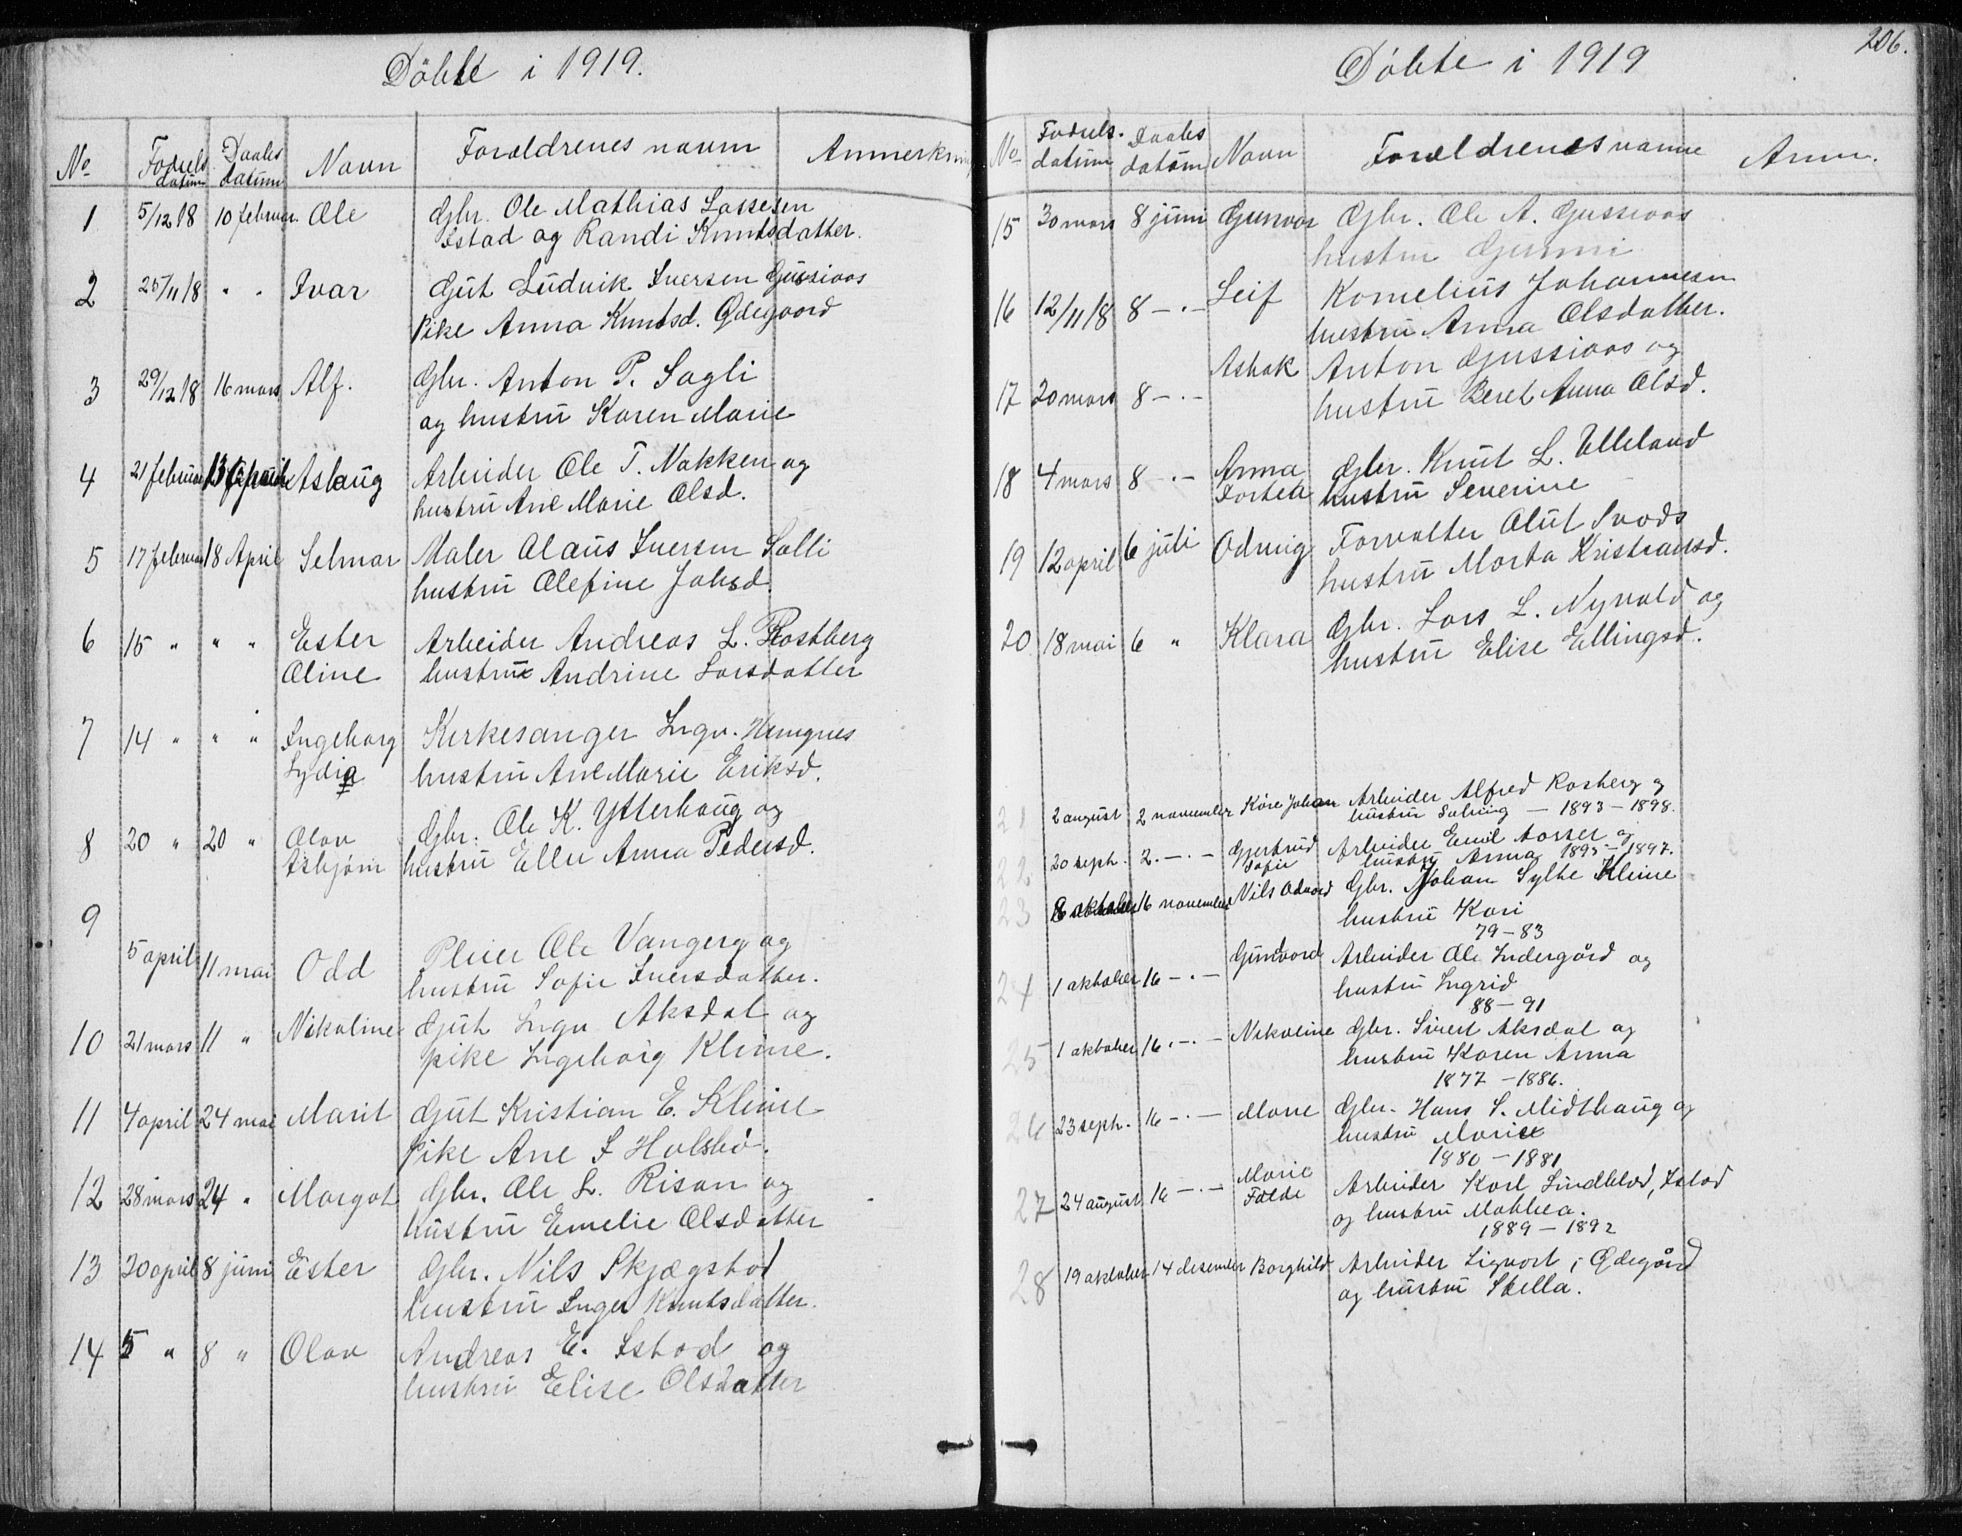 Döbte i 1919.
No Fødsels datum Daabs datum Navn Forældrenes navn Anmerkning
1 5/12 18 10 februar. Ole Gbr. Ole Mathias Lassesen
Istad og Randi Knutsdatter.
2 25/11 18 " " Ivar Gut Ludvik Iversen Gussiaas
Pike Anna Knutsd. Ødegaard
3 29/12 18 16 mars Alf. Gbr. Anton P. Sagli
og hustru Karen Marie
4 21 februar 13 April Aslaug Arbeider Ole T. Nakken og
hustru Ane Marie Olsd.
5 17 februar 18 April Selmar Maler Olaus Iversen Salli
hustru Olefine Johsd.
6 15 " " " Ester Arbeider Andreas L. Rostberg
Oline hustru Andrine Larsdatter
7 14 " " " Ingeborg Kirkesanger Ingv. Hemgnes
Lydia hustru Ane Marie Eriksd.
8 20 " 20 " Olav Gbr. Ole K. Ytterhaug og
Asbjørn hustru Ellen Anna Pedersd.
9
5 april 11 mai Odd Pleier Ole Vangerg og
hustru Sofie Iversdatter.
10 21 mars 11 " Nikoline Gut Ingv Aksdal og
pike Ingeborg Kleive.
11 4 april 24 mai Marit Gut Kristian E. Kleive
Pike Ane S Holsbö.
12 28 mars 24 " Margot Gbr. Ole L. Risan og
hustru Emelie Olsdatter
13 20 april 8 juni Ester Gbr. Nils Skjægstad
hustru Inger Knutsdatter.
14 5 " 8 " Olav Andreas E. Istad og
hustru Elise Olsdatter
206.
Döbte i 1919
No Fødsels- datum Daabs datum Navn Forældrenes navne Anm.
15 30 mars 8 juni Gunvor Gbr. Ole A. Gussiaas
hustru Gunni
16 12/11 18 8 -"- Leif Kornelius Johannesen
hustru Anna Olsdatter.
17 20 mars 8 -"- Aslak Anton Gussiaas og
hustru Beret Anna Olsd.
18 4 mars 8 -"- Anna Gbr. Knut L. Ulleland
Torbea hustru Severine
19 12 april 6 juli Odmig Forvalter Olut Svads
hustru Marta Kristiansd.
20 18 mai 6 " Klara Gbr. Lars L. Nyvold og
hustru Elise Ellingsd.
21 2 august 2 november Kåre Johan Arbeider Alfred Rosberg og
hustru Solveig - 1893 - 1898.
22 20 seph. 2. -"- Gjertrud Arbeider Emil Aasser og
Sofie hustru Anna 1895 - 1897.
23 8 oktober 16 november Nils Odvard Gbr. Johan Sylte Kleive
hustru Kari
79 - 83
24 1 oktober 16 -"- Gunvord Arbeider Ole Indergård og
hustru Ingrid
88 - 91
25 1 oktober 16. -"- Nikoline Gbr. Sivert Aksdal og
hustru Karen Anna
1877 - 1886.
26 23 seph. 16 -"- Marie Gbr. Hans S. Midthaug og
hustru Marie
1880 - 1881
27 24 august 16 -"- Marie Arbeider Karl Lindblad, Istad
Folde og hustru Mathea.
1889 - 1892
28 19 oktober 14 desember Borghild Arbeider Sigvart i Ødegård
og hustru Stella.